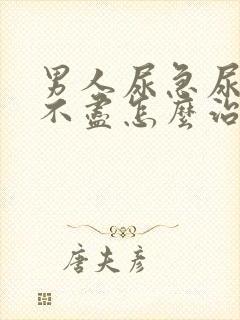 男人尿急尿
不盡怎麼治
唐夫彥